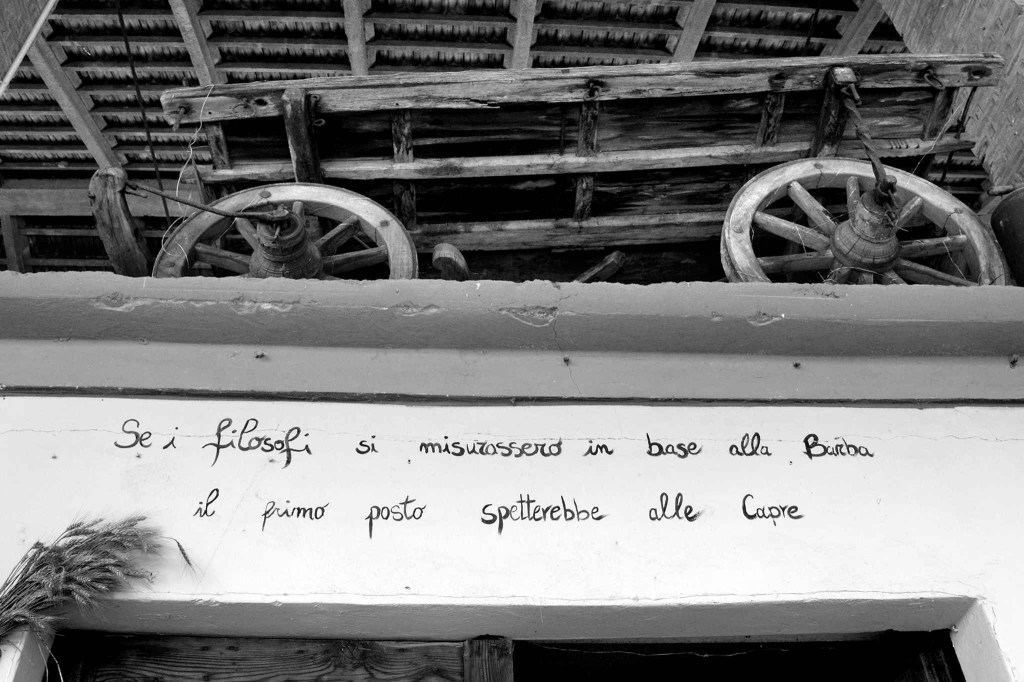 Se i filosofi si misurassero in base alla Barba
il primo posto spetterebbe alle Capre